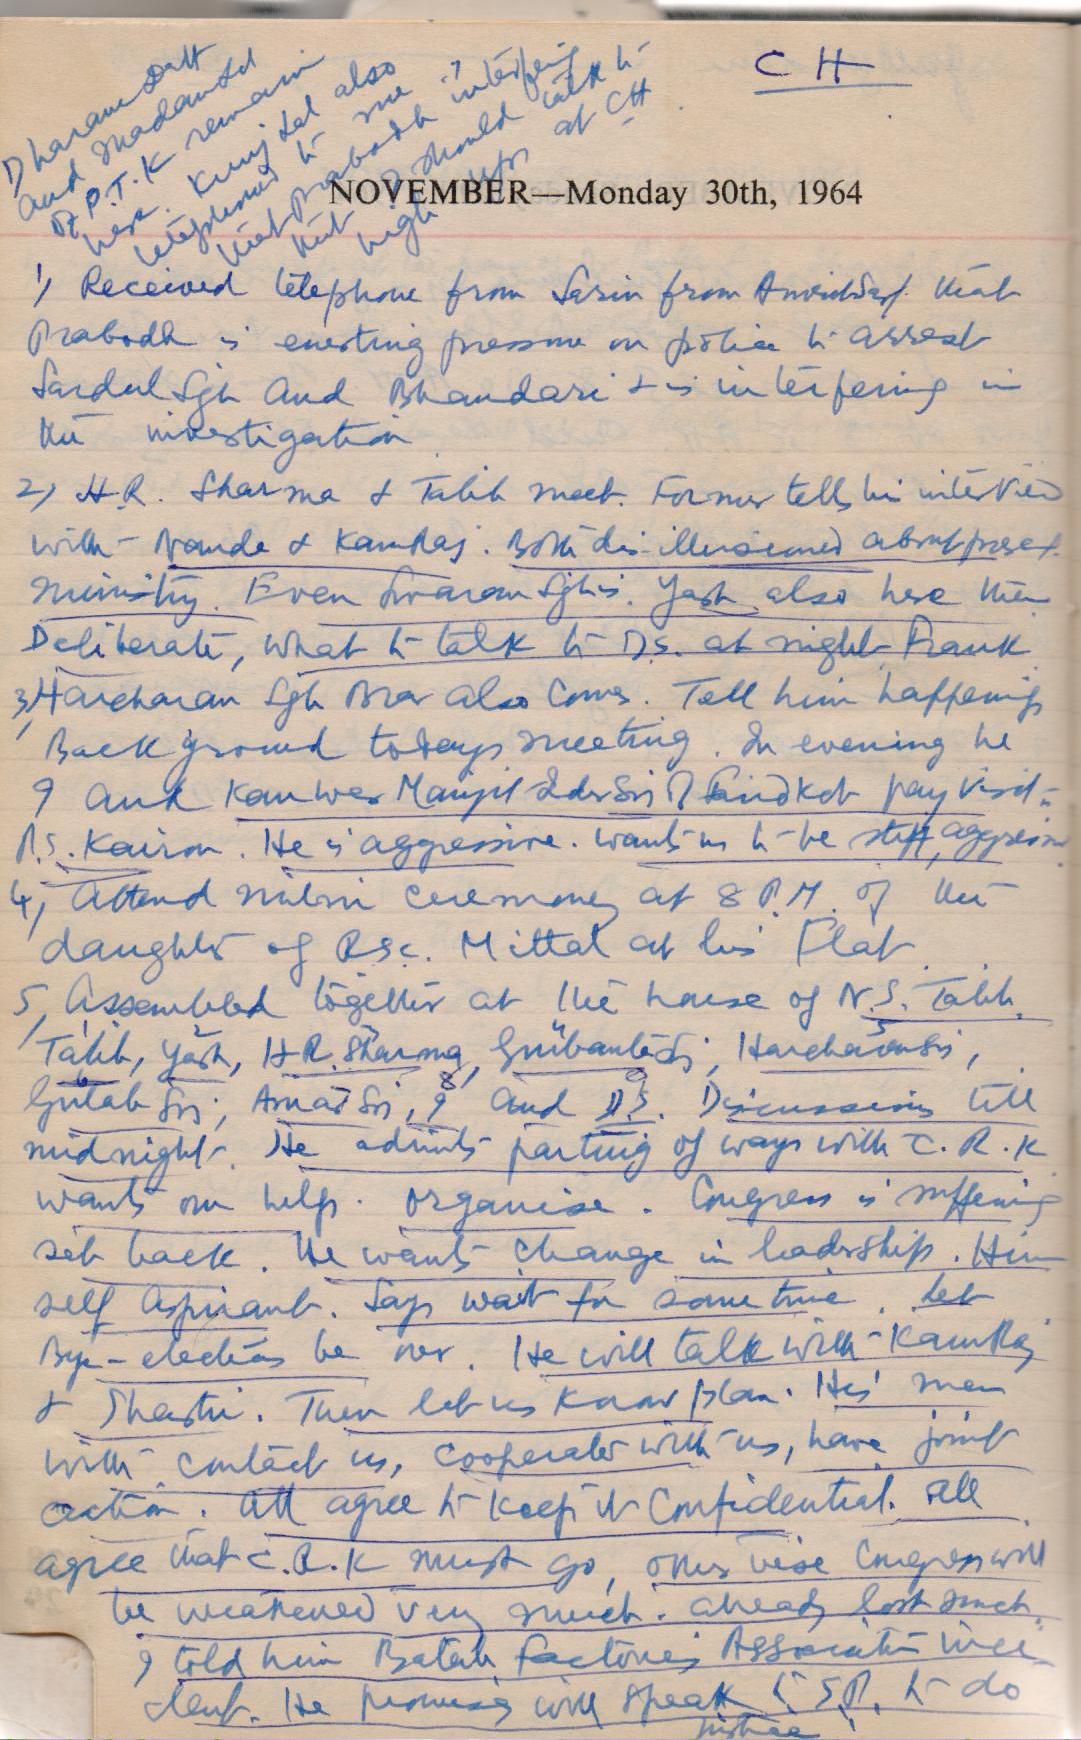 CH
Dharam Datt
and Madanlal
of P.T.K remain
here. Kunj Lal also
telephoned to me
that Prabodh interfering
but I should talk to
high ups at CH.
NOVEMBER—Monday 30th, 1964
1) Received telephone from Sarin from Amritsar that
Prabodh is exerting pressure on police to arrest
Sardul Sgh and Bhandari & is interfering in
the investigation
2) H.R. Sharma & Talib meet. Former tells his interview
with Nanda & KamRaj. Both dis-illusioned about present
Ministry. Even Swaran Sgh is. Yash also here then
Deliberate, what to talk to D.S. at night Frank
3, Harcharan Sgh Brar also Comes. Tell him happenings
Back ground todays meeting. In evening he
I and Kanwer Manjit Inder Sij of Faridkot pay visit
P.S. Kairon. He is aggressive. wants us to be stiff, aggressive
4, Attend milni ceremony at 8 P.M. of the
daughter of R.S.C. Mittal at his Flat.
5, Assembled together at the house of N.S. Talib.
Talib, Yash, H.R. Sharma, Gurbanta Sij, Harcharan Sij,
Gulab Sij, Amar Sij, I and D.S. Discussions till
midnight. He admits parting of ways with C.R.K
wants our help. Organise. Congress is suffering
set back. He wants change in leadership. Him
self Aspirant. Says wait for some time. Let
Bye-elections be over. He will talk with KamRaj
& Shastri. Then let us know plan. His men
will contact us, cooperate with us, have joint
action. All agree to keep it Confidential. All
agree that C.R.K must go, other wise Congress will
be weakened very much. already lost much.
I told him Batala Factories Association inci-
dent. He promises will speak to S.P. to do
justice